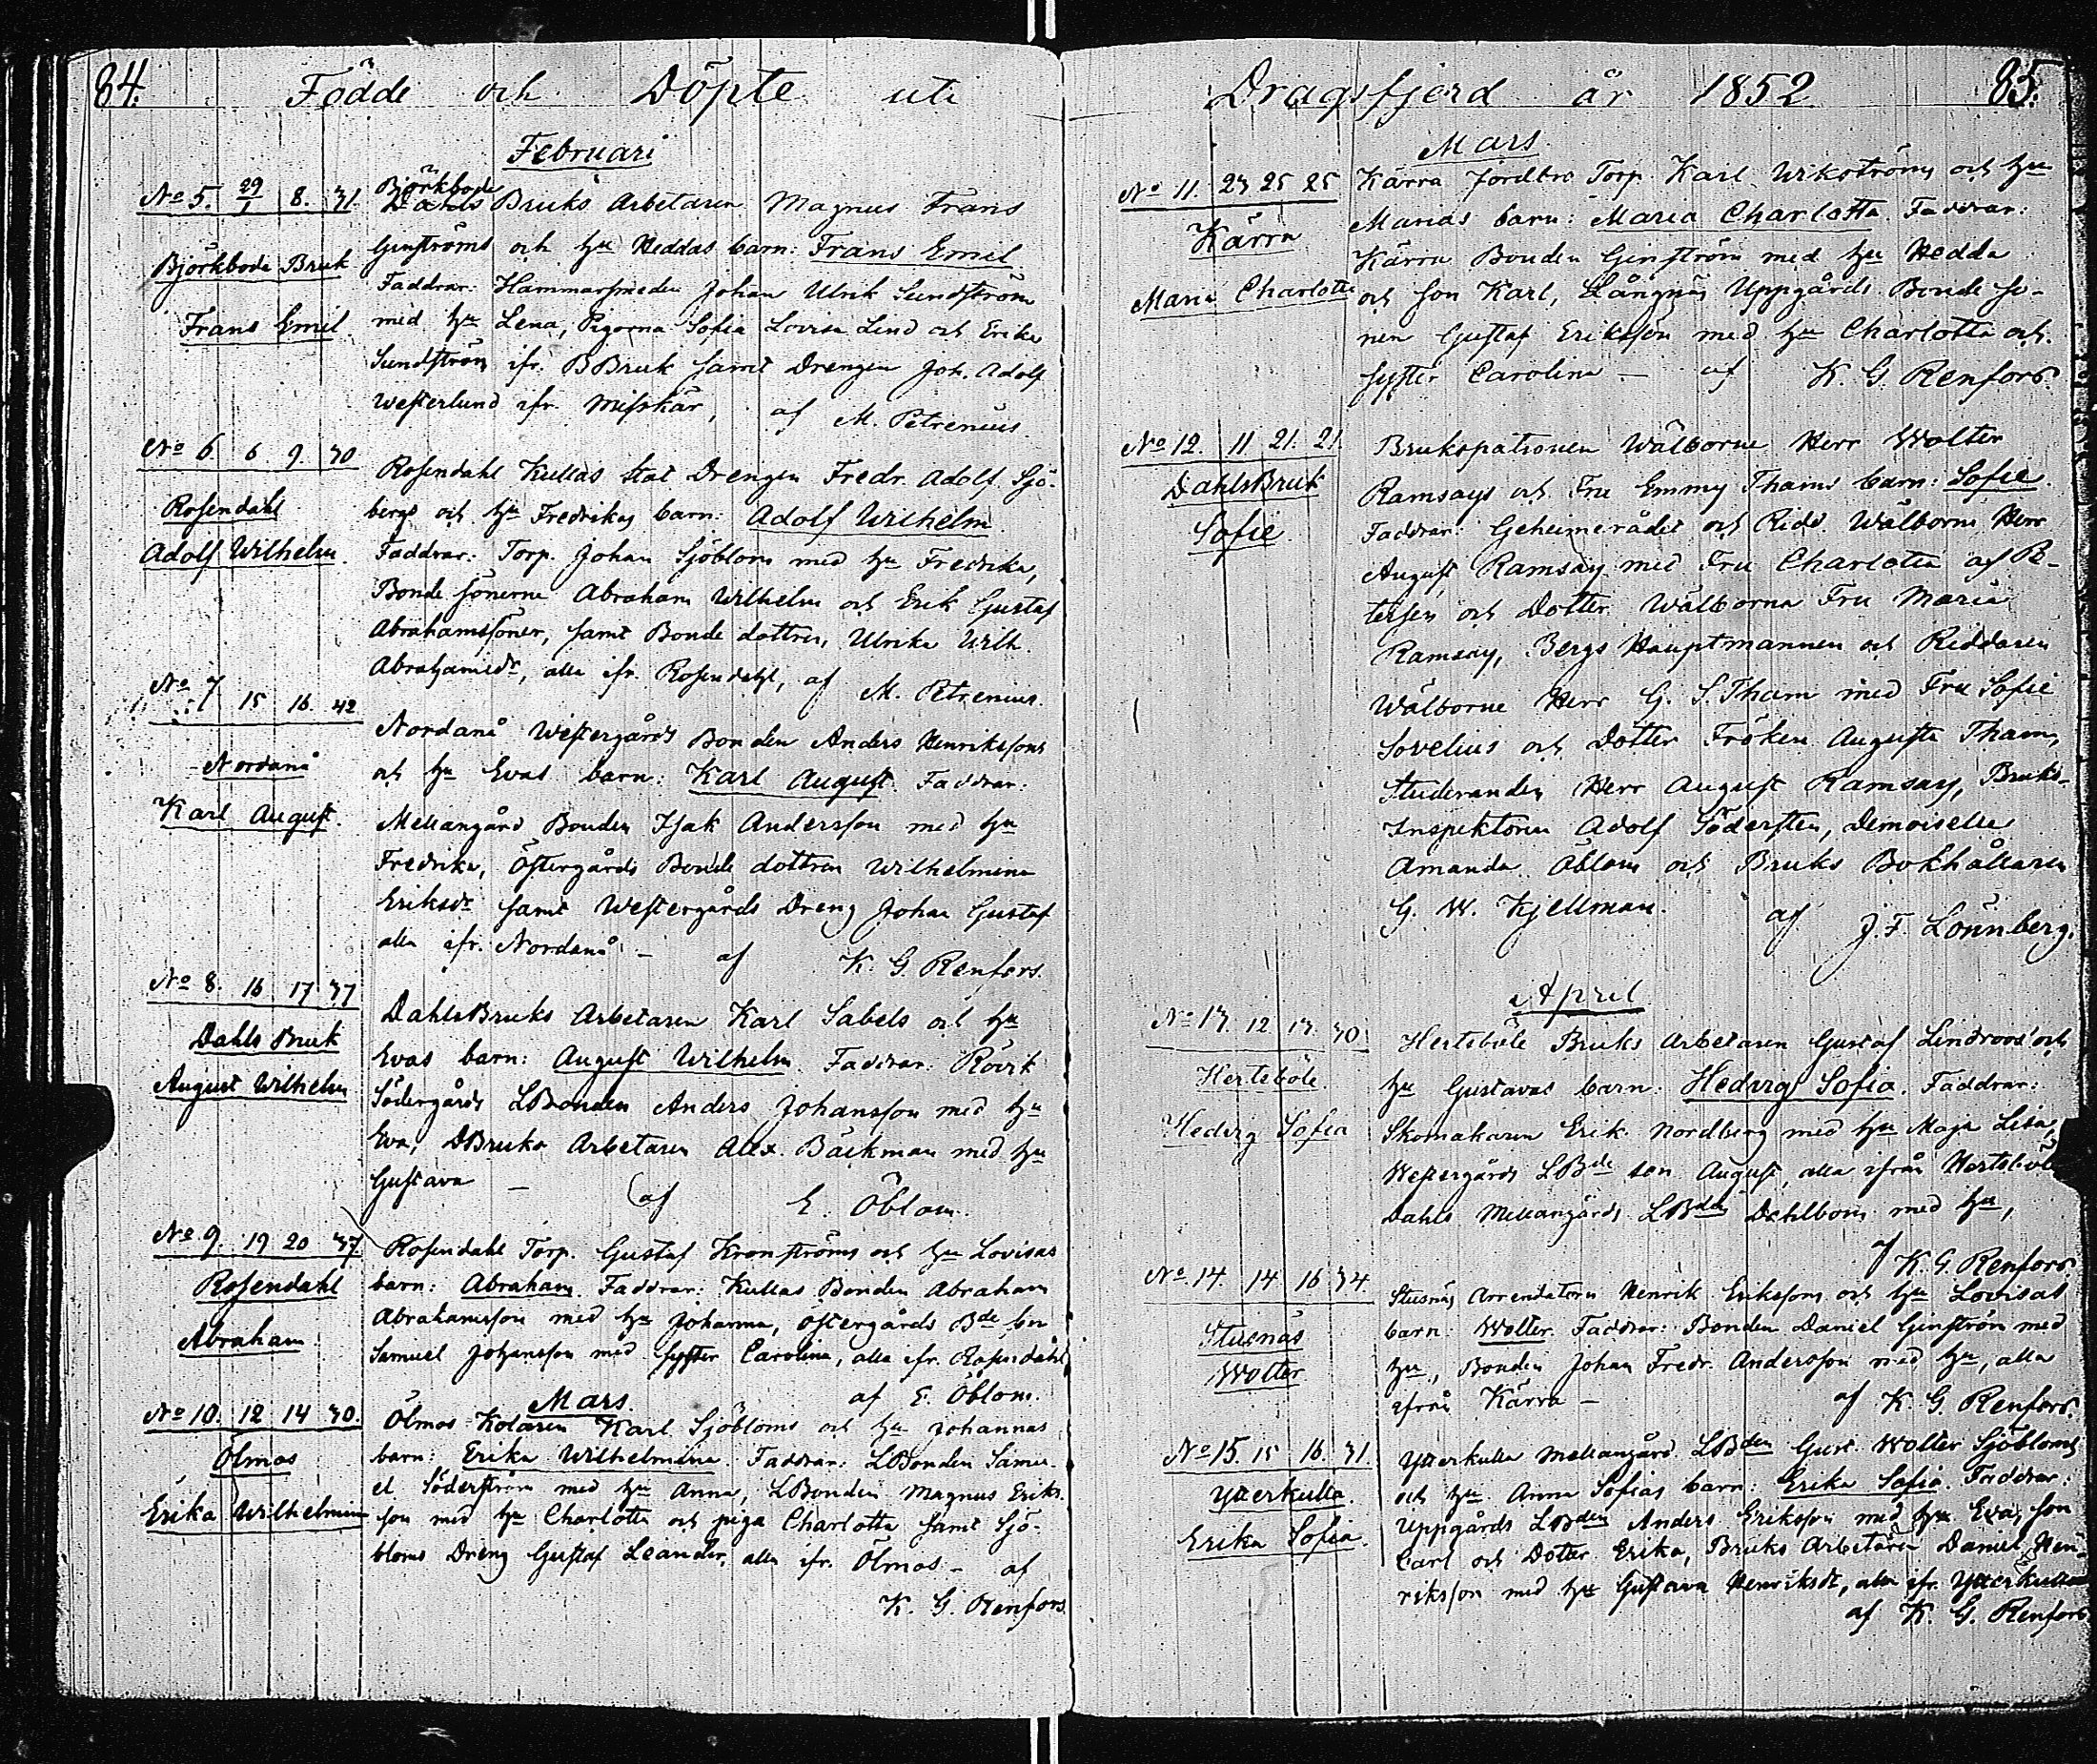 84.
Födde och Döpte uti
Februari
No 5. 29/1 8. 31.
Björkboda Bruk
Frans Emil.
Björkboda
Dahls Bruks Arbetaren Magnus Frans
Ginströms och hu Heddas barn: Frans Emil
Faddrar: Hammarsmeden Johan Ulrik Sundström
med hu Lena, Pigorna Sofia Lovisa Lind och Erika
Sundström ifr. BBruk samt Drengen Joh. Adolf
Westerlund ifr. Misskär, af M. Petrenius
No 6. 6 9. 30
Rosendahl
Adolf Wilhelm.
Rosendahl Kullas Stat Drengen Fredr. Adolf Sjö-
bergs och hu Fredrikas barn: Adolf Wilhelm.
Faddrar: Torp. Johan Sjöblom med hu Fredrika,
Bonde sönerne Abraham Wilhelm och Erik Gustaf
Abrahamssöner, samt Bonde dottren, Ulrika Wilh.
Abrahamsdr, alla ifr. Rosendahl, af M. Petrenius.
No 7 15 16. 42
Nordanå
Karl August.
Nordanå Westergårds Bonden Anders Henrikssons
och hu Evas barn: Karl August. Faddrar:
Mellangård Bonden Isak Andersson med hu
Fredrika, Östergårds Bonde dottren Wilhelmina
Eriksdr samt Westergårds Dreng Johan Gustaf
alla ifr. Nordanå – af K. G. Renfors.
No 8. 16 17 37
Dahls Bruk
August Wilhelm
DahlsBruks Arbetaren Karl Sabels och hu
Evas barn: August Wilhelm. Faddrar: Rövik
Södergårds LBonden Anders Johansson med hu
Eva, DBruks Arbetaren Alex. Bäckman med hu
Gustava – af E. Öblom.
No 9. 19 20 37
Rosendahl
Abraham
Rosendahl Torp. Gustaf Kronströms och hu Lovisas
barn: Abraham. Faddrar: Kullas Bonden Abraham
Abrahamsson med hu Johanna, Östergårds Bde son
Samuel Johansson med syster Carolina, alla ifr. Rosendahl
af E. Öblom.
Mars.
No 10. 12 14 30.
Ölmos
Erika Wilhelmina
Ölmos Kolaren Karl Sjöbloms och hu Johannas
barn: Erika Wilhelmina. Faddrar: LBonden Samu-
el Söderström med hu Anna, LBonden Magnus Eriks-
son med hu Charlotta och piga Charlotta samt Sjö-
bloms Dreng Gustaf Leander, alla ifr. Ölmos – af
K. G. Renfors.
Dragsfjerd år 1852
85.
Mars.
No 11. 23 25 25
Kärra
Maria Charlotta
Kärra Jordbro Torp. Karl Wikströms och hu
Marias barn: Maria Charlotta. Faddrar:
Kärra Bonden Ginström med hu Hedda
och son Karl, Långnäs Uppgårds Bonde so-
nen Gustaf Eriksson med hu Charlotta och
syster Carolina – af K. G. Renfors.
No 12. 11 21. 21.
DahlsBruk
Sofie.
Brukspatronen Wälborne Herr Wolter
Ramsays och Fru Emmy Thams barn: Sofie.
Faddrar: Geheimerådet och Ridd. Wälborne Herr
August Ramsay med Fru Charlotta af Pe-
tersen och Dotter Wälborna Fru Maria
Ramsay, Bergs Hauptmannen och Riddaren
Wälborne Herr G. S. Tham med Fru Sofie
Sovelius och Dotter Fröken Augusta Tham,
Studeranden Herr August Ramsay, Bruks-
Inspektoren Adolf Södersten, Demoiselle
Amanda Öblom och Bruks Bokhållaren
G. W. Kjellman. af J. F. Lönnberg.
April
No 13. 12 13. 30
Herteböle.
Hedvig Sofia
Herteböle Bruks Arbetaren Gustaf Lindroos' och
hu Gustavas barn: Hedvig Sofia. Faddrar:
Skomakaren Erik Nordberg med hu Maja Lisa,
Westergårds LBde son August, alla ifrån Herteböle
Dahls Mellangårds LBden Dahlbom med hu,
af K. G. Renfors
No 14. 14 16 34.
Stusnäs
Wolter
Stusnäs Arrendatorn Henrik Erikssons och hu Lovisas
barn: Wolter. Faddrar: Bonden Daniel Ginström med
hu, Bonden Johan Fredr. Andersson med hu, alla
ifrån Kärra – af K. G. Renfors.
No 15. 15 16. 31
Ytterkulla.
Erika Sofia.
Ytterkulla Mellangård LBden Gust. Wolter Sjöbloms
och hu Anna Sofias barn: Erika Sofia. Faddrar:
Uppgårds LBden Anders Eriksson med hu Eva, son
Carl och Dotter Erika, Bruks Arbetaren Daniel Hen-
riksson med hu Gustava Henriksdr, alla ifr. Ytterkulla
af K. G. Renfors